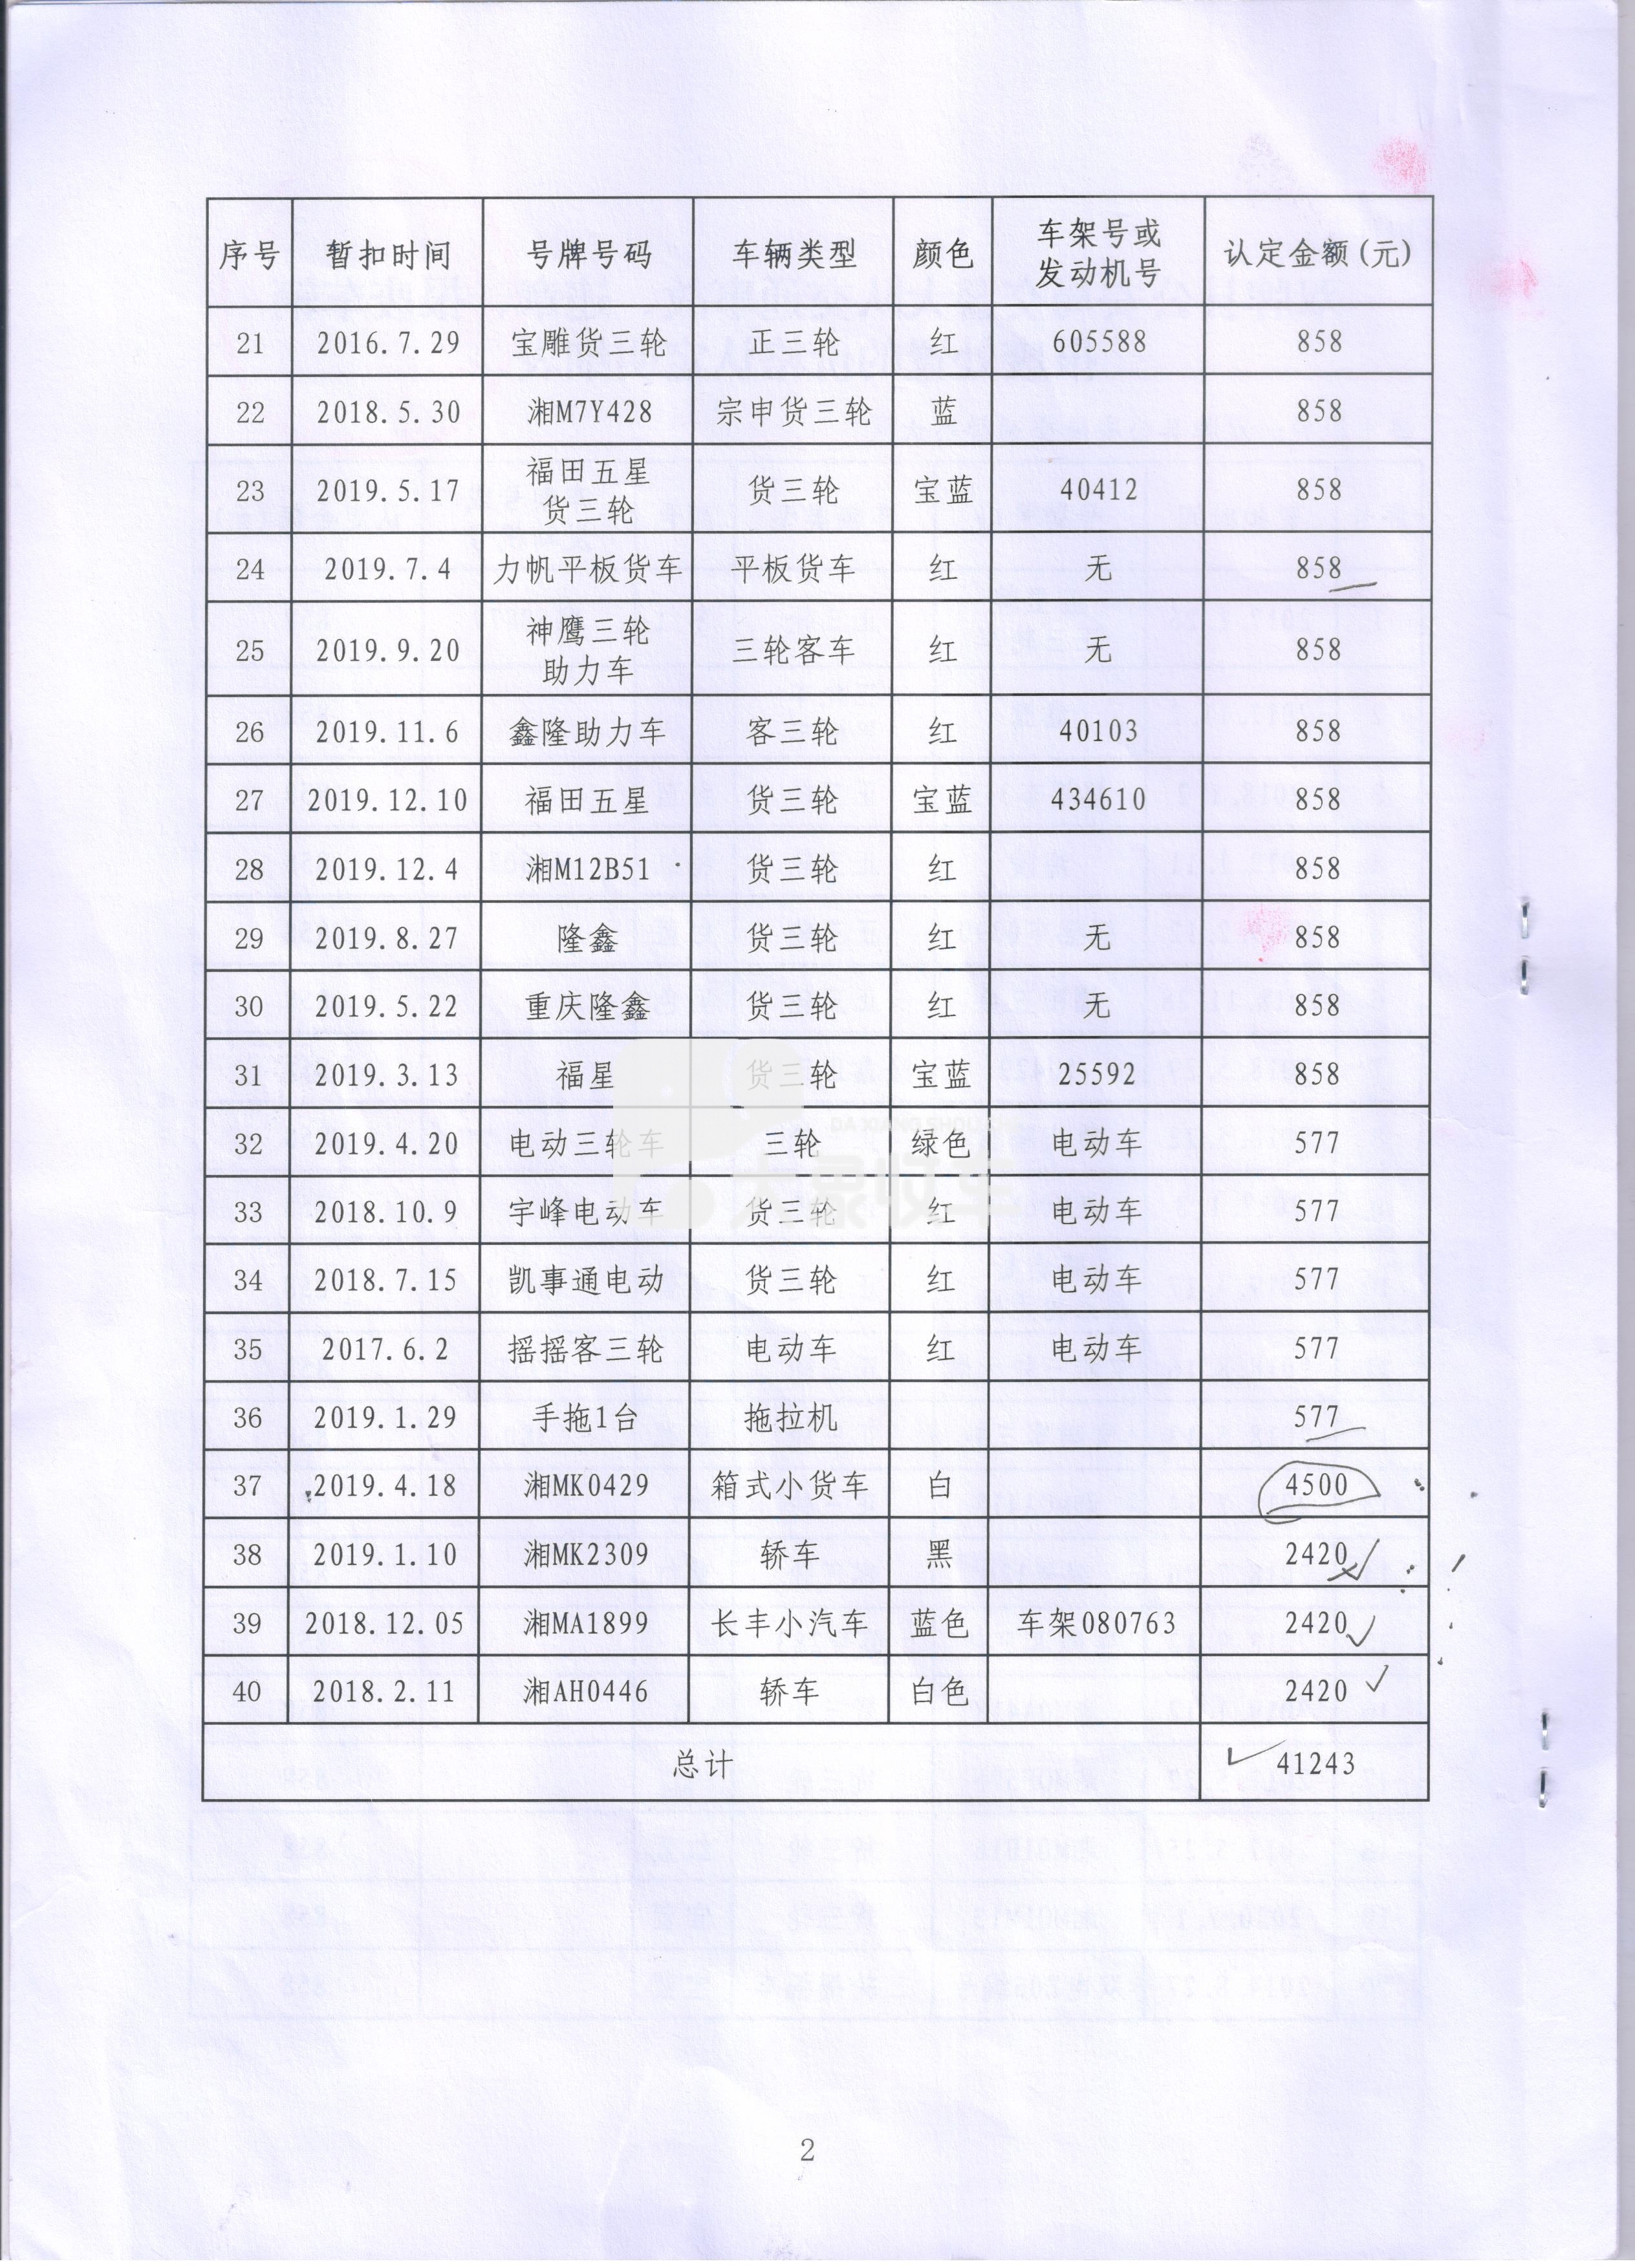 序号 暂扣时间 号牌号码 车辆类型 颜色 车架号或 认定金额(元)
发动机号
21 2016.7.29 宝雕货三轮 正三轮 红 605588 858
22 2018.5.30 湘M7Y428 宗申货三轮 蓝 858
23 2019.5.17 福田五星 货三轮 宝蓝 40412 858
货三轮
24 2019.7.4 力帆平板货车 平板货车 红 无 858
25 2019.9.20 神鹰三轮 三轮客车 红 无 858
助力车
26 2019.11.6 鑫隆助力车 客三轮 红 40103 858
27 2019.12.10 福田五星 货三轮 宝蓝 434610 858
28 2019.12.4 湘M12B51 货三轮 红 858
29 2019.8.27 隆鑫 货三轮 红 无 858
30 2019.5.22 重庆隆鑫 货三轮 红 无 858
31 2019.3.13 福星 货三轮 宝蓝 25592 858
32 2019.4.20 电动三轮车 三轮 绿色 电动车 577
33 2018.10.9 宇峰电动车 货三轮 红 电动车 577
34 2018.7.15 凯事通电动 货三轮 红 电动车 577
35 2017.6.2 摇摇客三轮 电动车 红 电动车 577
36 2019.1.29 手拖1台 拖拉机 577
37 2019.4.18 湘MK0429 箱式小货车 白 4500
38 2019.1.10 湘MK2309 轿车 黑 2420
39 2018.12.05 湘MA1899 长丰小汽车 蓝色 车架080763 2420
40 2018.2.11 湘AH0446 轿车 白色 2420
总计 41243
2